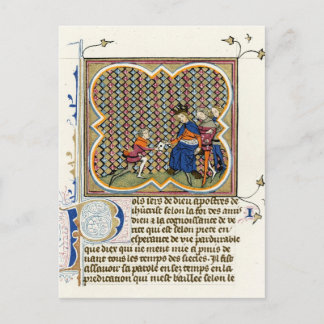 ols sers de dieu apostres de
ihucrist selon la foi des amis
dieu z la cognoissance de ve
rite qui est selon piete en
esperance de vie pardurable
que diex qui ne ment mie a pmis de
uant tous les temps des siecles. Il fist
assauoir sa parole en ses temps en la
predication qui mest baillee selon le